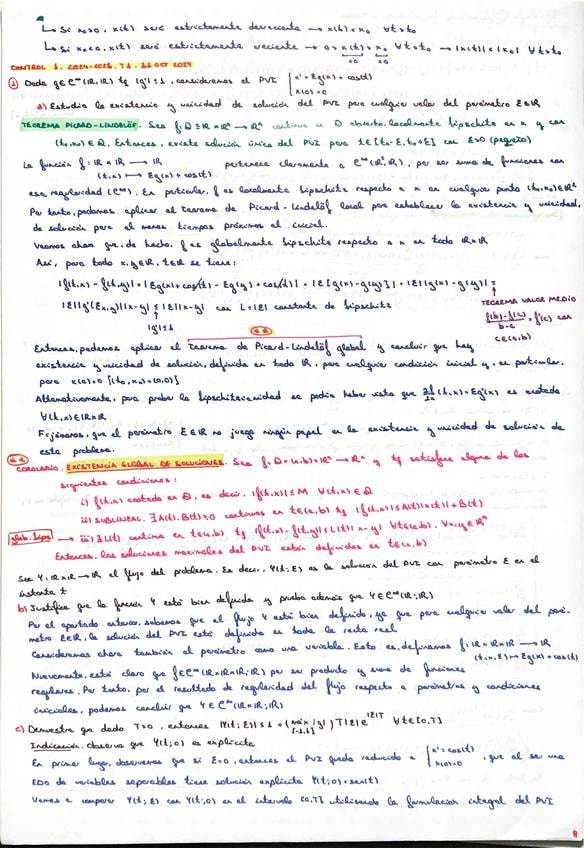 ↳ Si x₀>0, x(t) será estrictamente decreciente → x(t)<x₀ ∀t>t₀
↳ Si x₀<0, x(t) será estrictamente creciente → 0>x(t)>x₀ ∀t>t₀ → |x(t)|<|x₀| ∀t>t₀
CONTROL 1. 2024-2025. T1. 31 OCT 2024
① Dada g∈C^∞(ℝ,ℝ) tq |g'|≤1, consideramos el PVI { x'=Eg(x)+cos(t)
x(0)=0
a) Estudia la existencia y unicidad de solución del PVI para cualquier valor del parámetro E∈ℝ
TEOREMA PICARD-LINDELÖF. Sea f:Ω⊆ℝ×ℝⁿ→ℝⁿ continua en Ω abierto, localmente lipschitz en x y con
(t₀,x₀)∈Ω. Entonces, existe solución única del PVI para t∈[t₀-E,t₀+E] con E>0 (pequeño)
La función f:ℝ×ℝ→ℝ pertenece claramente a C^∞(ℝ²,ℝ), por ser suma de funciones con
(t,x)↦Eg(x)+cos(t)
esa regularidad (C^∞). En particular, f es localmente lipschitz respecto a x en cualquier punto (t₀,x₀)∈ℝ²
Por tanto, podemos aplicar el teorema de Picard-Lindelöf local para establecer la existencia y unicidad,
de solución para al menos tiempos próximos al inicial.
Veamos ahora que, de hecho, f es globalmente lipschitz respecto a x en todo ℝ×ℝ
Así, para todo x,y∈ℝ, t∈ℝ se tiene:
|f(t,x)-f(t,y)|=|Eg(x)+cos(t)-Eg(y)+cos(t)|=|E[g(x)-g(y)]|=|E||g(x)-g(y)|=
|E||g'(Ex,y)||x-y|≤|E||x-y| con L=|E| constante de lipschitz
|g'|≤1
TEOREMA VALOR MEDIO
f(b)-f(a)/b-a = f'(c) con
c∈(a,b)
(**)
Entonces, podemos aplicar el teorema de Picard-Lindelöf global y concluir que hay
existencia y unicidad de solución, definida en todo ℝ, para cualquier condición inicial y, en particular,
para x(0)=0 [(t₀,x₀)=(0,0)]
Alternativamente, para probar la lipschitzianidad se podía haber visto que ∂f/∂x(t,x)=Eg'(x) es acotada
∀(t,x)∈ℝ×ℝ
Fijémonos, que el parámetro E∈ℝ no juega ningún papel en la existencia y unicidad de solución de
este problema.
(**) COROLARIO. EXISTENCIA GLOBAL DE SOLUCIONES. Sea f:Ω=(a,b)×ℝⁿ→ℝⁿ y tq satisface alguna de las
siguientes condiciones:
i) f(t,x) acotada en Ω, es decir, |f(t,x)|≤M ∀(t,x)∈Ω
ii) SUBLINEAL. ∃A(t),B(t)≥0 continuas en t∈(a,b) tq |f(t,x)|≤A(t)|x(t)|+B(t)
glob. lips → iii) ∃L(t) continua en t∈(a,b) tq |f(t,x)-f(t,y)|≤L(t)|x-y| ∀t∈(a,b), ∀x,y∈ℝⁿ
Entonces, las soluciones maximales del PVI están definidas en t∈(a,b)
Sea φ:ℝ×ℝ→ℝ el flujo del problema. Es decir, φ(t;E) es la solución del PVI con parámetro E en el
instante t
b) Justifica que la función φ está bien definida y prueba además que φ∈C^∞(ℝ²;ℝ)
Por el apartado anterior, sabemos que el flujo φ está bien definido, ya que para cualquier valor del pará-
metro E∈ℝ, la solución del PVI está definida en toda la recta real
Consideramos ahora también el parámetro como una variable. Esto es, definamos f:ℝ×ℝ×ℝ→ℝ
(t,x,E)↦Eg(x)+cos(t)
Nuevamente, está claro que f∈C^∞(ℝ×ℝ×ℝ;ℝ) por ser producto y suma de funciones
regulares. Por tanto, por el resultado de regularidad del flujo respecto a parámetros y condiciones
iniciales, podemos concluir que φ∈C^∞(ℝ²;ℝ)
c) Demuestra que dado T>0, entonces |φ(t;E)|≤1+(max|g|)T|E|e^{|E|T} ∀t∈[0,T]
[-1,1]
Indicación, observa que φ(t;0) es explícita
En primer lugar, observemos que si E=0, entonces el PVI queda reducido a { x'=cos(t), que al ser una
x(0)=0
EDO de variables separables tiene solución explícita φ(t;0)=sen(t)
Vamos a comparar φ(t;E) con φ(t;0) en el intervalo [0,T] utilizando la formulación integral del PVI
8